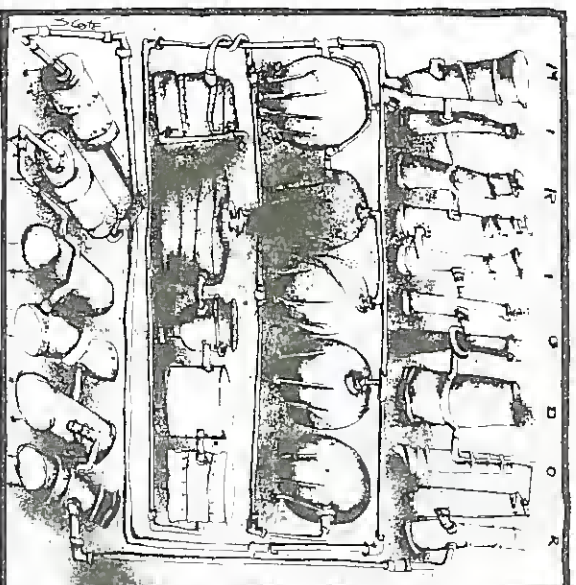 S Cote
M I R I G D O R